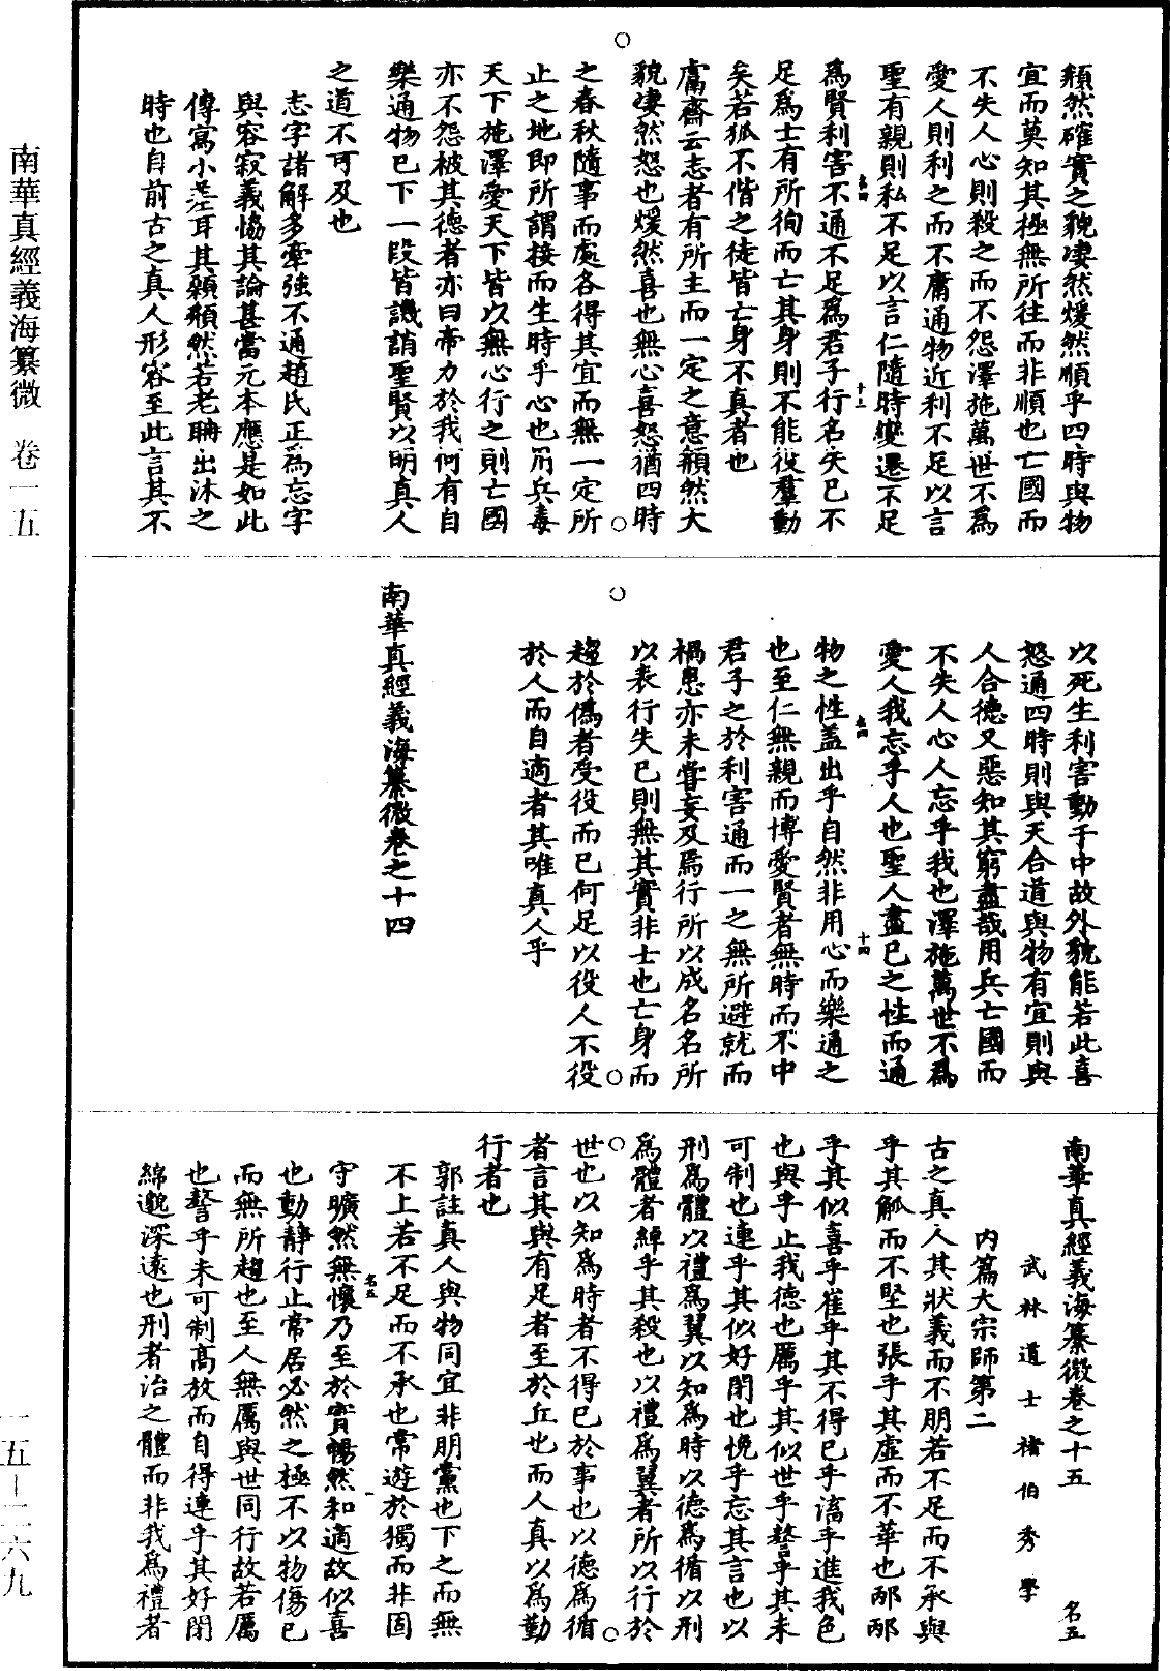 南華真經義海纂微　卷一五
一五—二六九
頯然確實之貌凄然煖然順乎四時與物
宜而莫知其極無所往而非順也亡國而
不失人心則殺之而不怨澤施萬世不爲
愛人則利之而不庸通物近利不足以言
聖有親則私不足以言仁隨時變遷不足
名四　十三
爲賢利害不通不足爲君子行名失已不
足爲士有所徇而亡其身則不能役羣動
矣若狐不偕之徒皆亡身不真者也
鬳齋云志者有所主而一定之意頯然大
貌凄然怒也煖然喜也無心喜怒猶四時
之春秋隨事而處各得其宜而無一定所
止之地即所謂接而生時乎心也用兵毒
天下施澤愛天下皆以無心行之則亡國
亦不怨被其德者亦曰帝力於我何有自
樂通物已下一段皆譏誚聖賢以明真人
之道不可及也
志字諸解多牽強不通趙氏正爲忘字
與容寂義恊其論甚當元本應是如此
傳寫小差耳其顙頯然若老聃出沐之
時也自前古之真人形容至此言其不
以死生利害動于中故外貌能若此喜
怒通四時則與天合道與物有宜則與
人合德又惡知其窮盡哉用兵亡國而
不失人心人忘乎我也澤施萬世不爲
愛人我忘乎人也聖人盡已之性而通
名四　十四
物之性盖出乎自然非用心而樂通之
也至仁無親而博愛賢者無時而不中
君子之於利害通而一之無所避就而
禍患亦未甞妄及焉行所以成名名所
以表行失已則無其實非士也亡身而
趨於僞者受役而已何足以役人不役
於人而自適者其唯真人乎
南華真經義海纂微卷之十四
南華真經義海纂微卷之十五　名五
武林道士褚伯秀學
内篇大宗師第二
古之真人其狀義而不朋若不足而不承與
乎其觚而不堅也張乎其虛而不華也邴邴
乎其似喜乎崔乎其不得已乎滀乎進我色
也與乎止我德也厲乎其似世乎謷乎其未
可制也連乎其似好閉也悗乎忘其言也以
刑爲體以禮爲翼以知爲時以德爲循以刑
爲體者綽乎其殺也以禮爲翼者所以行於
世也以知爲時者不得已於事也以德爲循
者言其與有足者至於丘也而人真以爲勤
行者也
郭註真人與物同宜非朋黨也下之而無
不上若不足而不承也常遊於獨而非固
名五　一
守曠然無懷乃至於實暢然和適故似喜
也動靜行止常居必然之極不以物傷已
而無所趨也至人無厲與世同行故若厲
也謷乎未可制高放而自得連乎其好閉
綿邈深遠也刑者治之體而非我爲禮者